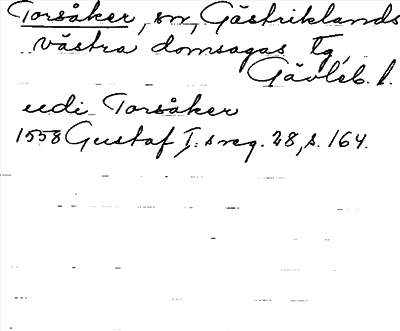 Torsåker, sn, Gästriklands
västra domsagas tg,
Gävleb. l.
uedi Torsåker
1558 Gustaf I:s reg. 28, s. 164.